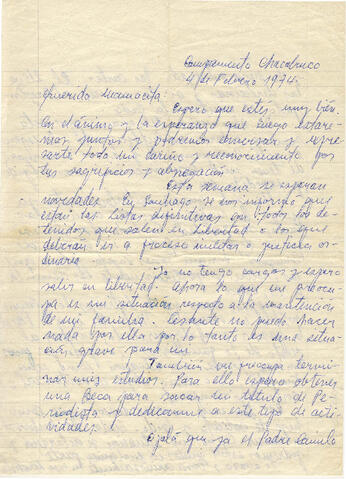 Campamento Chacabuco
4 de Febrero 1974.
Querido Mamacita:
Espero que estés muy bien
en el ánimo y la esperanza que luego estare-
mos juntos y podremos conversar y expre-
sarte todo mi cariño y reconocimiento por
tus sacrificios y abnegación.
Esta semana se esperan
novedades. En Santiago se nos informó que
están las listas definitivas de todos los de-
tenidos que salen en libertad o los que
deberán ir a proceso militar o justicia or-
dinaria.
Yo no tengo cargos y espero
salir en libertad. Ahora lo que me preocu-
pa es mi situación respecto a la mantención
de mi familia. Cesante no puedo hacer
nada por ella por lo tanto es una situa-
ción grave para mí.
También me preocupa termi-
nar mis estudios. Para ello espero obtener
una Beca para sacar un título de Pe-
riodista y dedicarme a este tipo de acti-
vidades.
Ojalá que ya el Padre Camilo